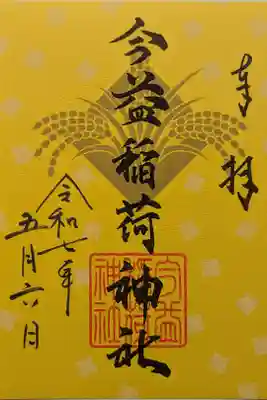 奉拝
今益稲荷神社
令和七年
五月六日